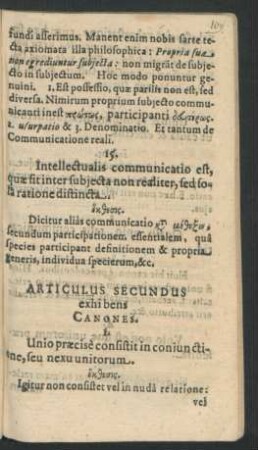 fundi asserimus. Manent enim nobis sarte te-
cta axiomata illa philosophica: Propria sua
non egrediuntur subjecta: non migrāt de subje-
cto in subjectum. Hoc modo ponuntur ge-
nuini. 1. Est possessio, quæ parilis non est, sed
diversa. Nimirum proprium subjecto commu-
nicanti inest πρώτως, participanti
2. usurpatio & 3. Denominatio. Et tantum de
Communicatione reali.
15.
Intellectualis communicatio est,
quæ fit inter subjecta non realiter, sed so-
la ratione distincta.
ἔκθεσις.
Dicitur aliàs communicatio κỳ μέθεξιν,
secundum participationem essentialem, quâ
species participant definitionem & propria
generis, individua specierum, &c.
ARTICULUS SECUNDUS
exhibens
CANONES.
1.
Unio præcisè consistit in coniuncti-
ne, seu nexu unitorum.
ἔκθεσις.
Igitur non consistet vel in nudâ relatione:
vel